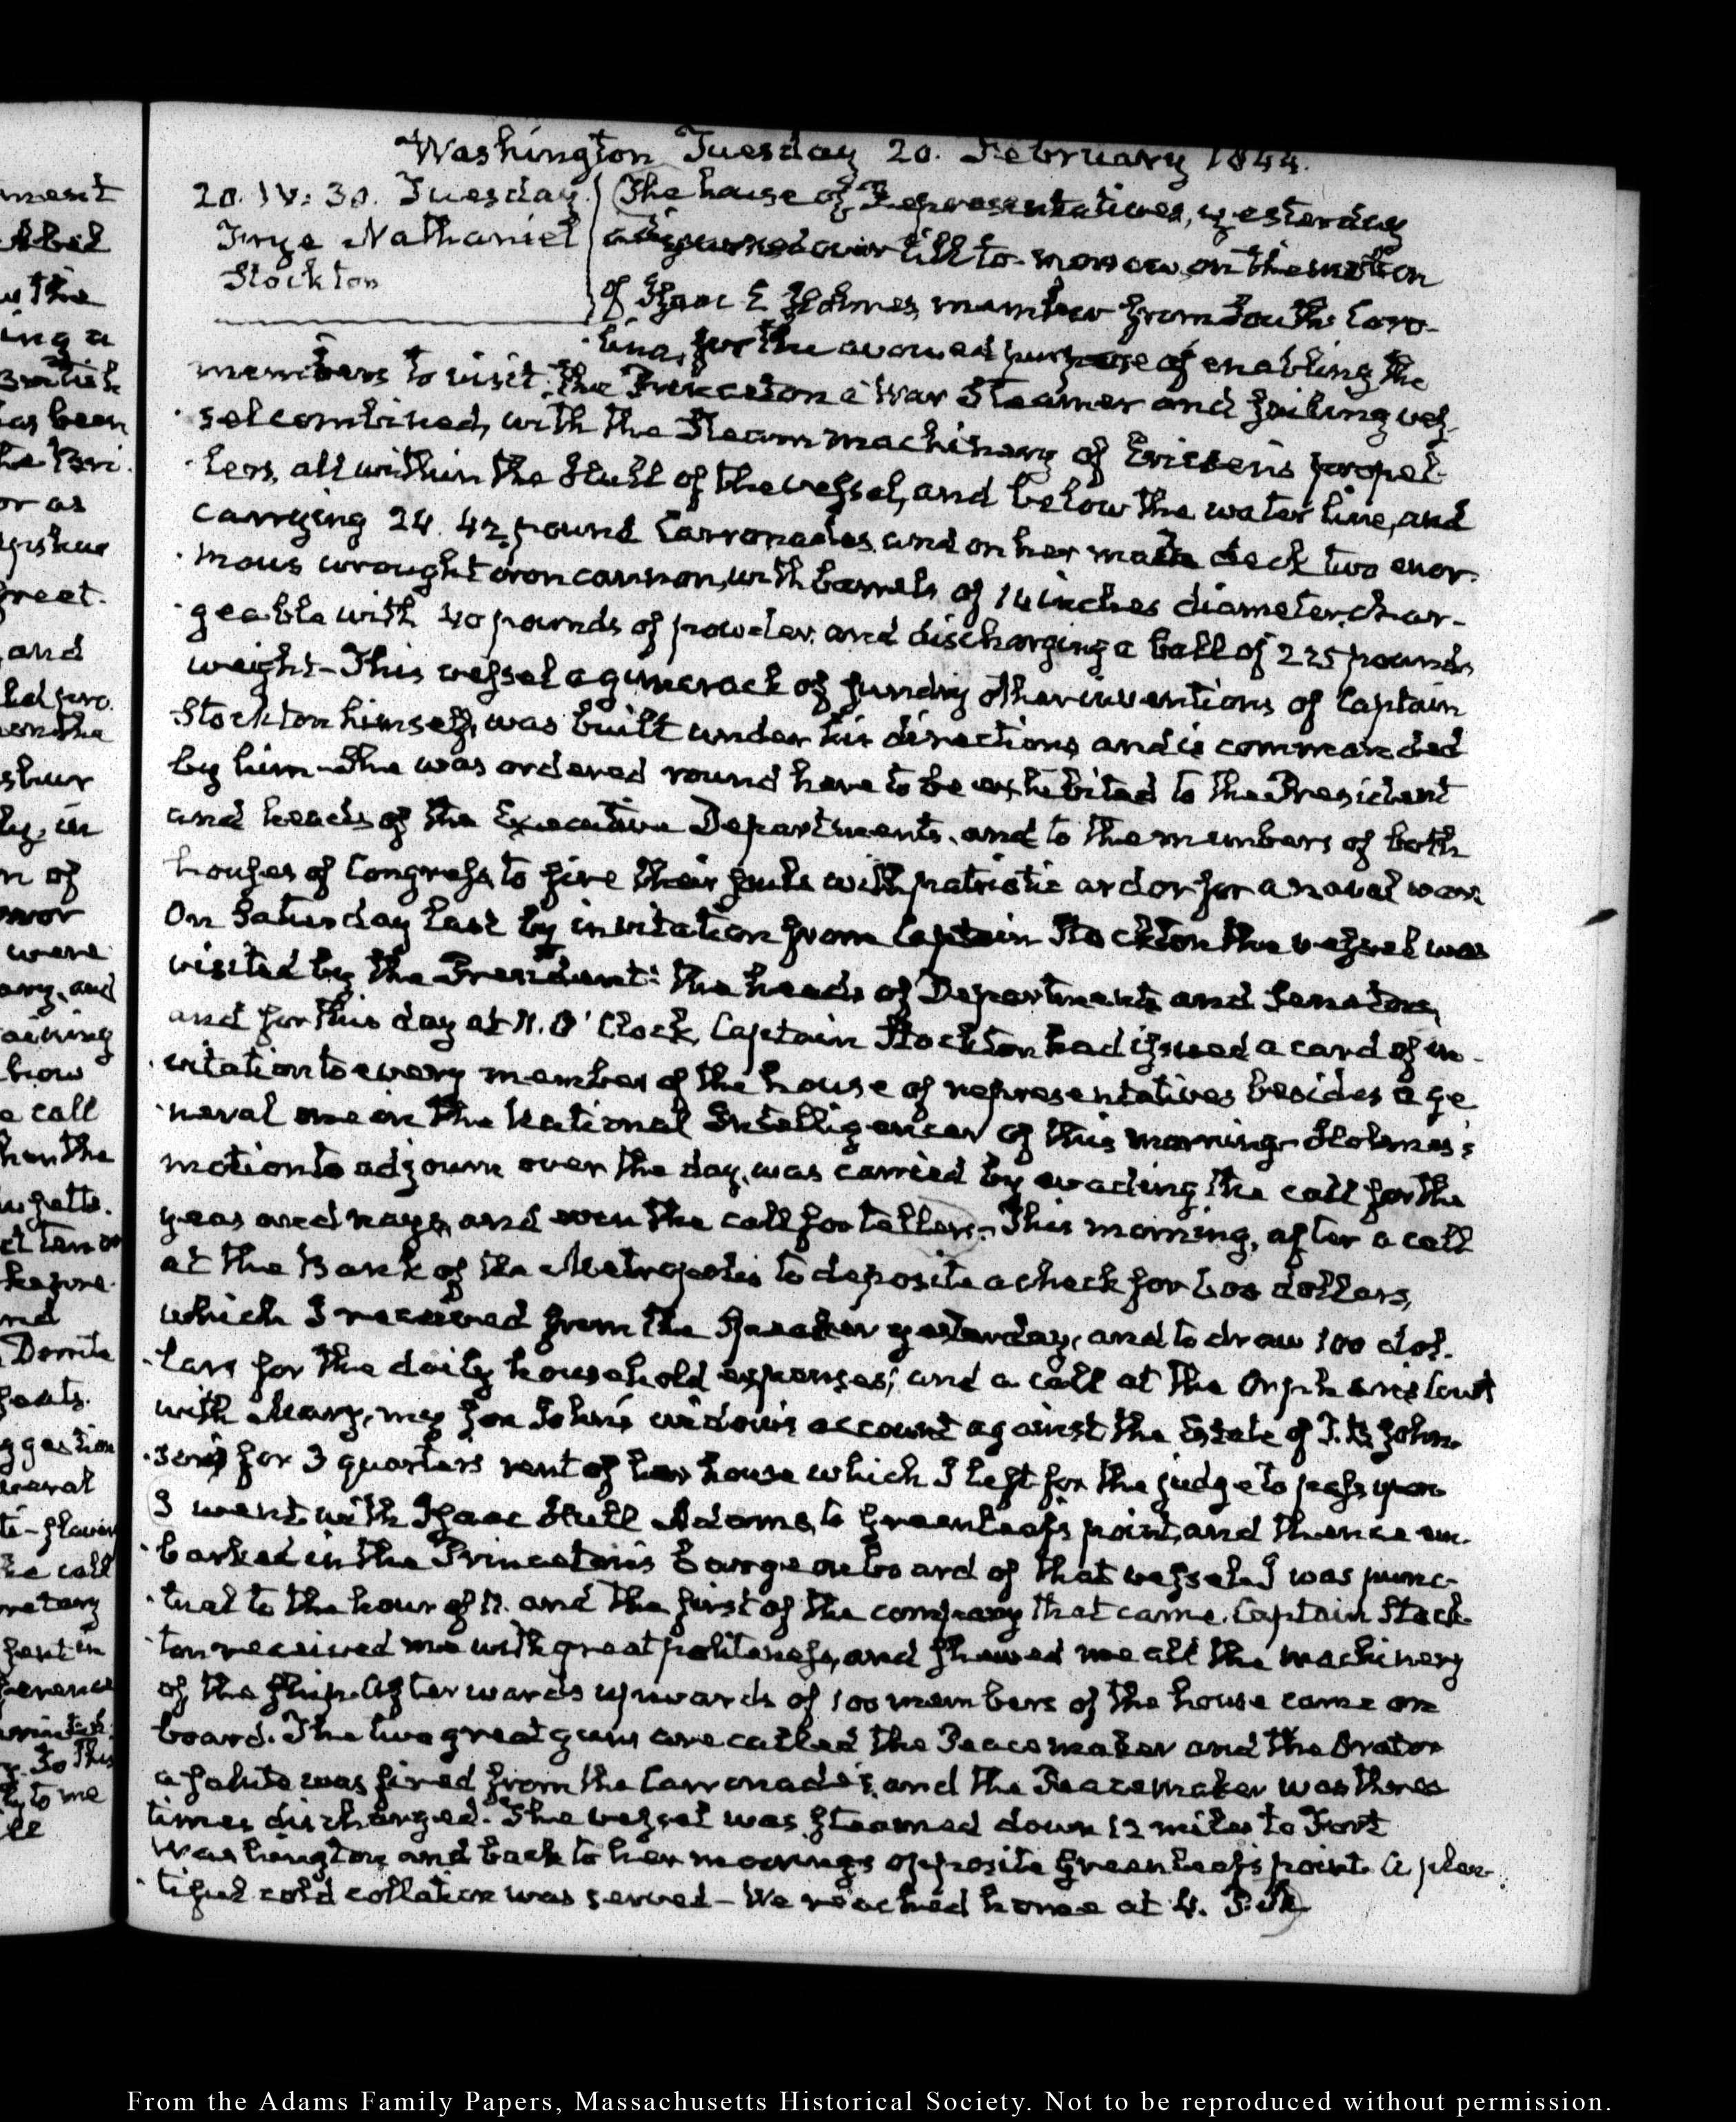 Washington Tuesday 20. February 1844.
20. IV: 30. Tuesday
Frye Nathaniel
Stockton
The house of Representatives, yesterday
adjourned over till to-morrow on the motion
of Isaac E Holmes, member from South Caro-
lina, for the avowed purpose of enabling the
members to visit the Princeton a War Steamer and sailing ves-
sel combined, with the Steam machinery of Ericson's propel-
lers, all within the Hull of the vessel, and below the water line, and
carrying 24. 42 pound Carronades and on her main deck two enor-
mous wrought iron cannon, with barrels of 14 inches diameter, char-
geable with 40 pounds of powder, and discharging a ball of 225 pounds
weight—This vessel a gimcrack of sundry other inventions of Captain
Stockton himself, was built under his directions, and is commanded
by him—She was ordered round here to be exhibited to the President
and heads of the Executive Departments, and to the members of both
houses of Congress, to fire their souls with patriotic ardor for a naval war.
On Saturday last by invitation from Captain Stockton the vessel was
visited by the President: the heads of Departments and Senators,
and for this day at 11. O'Clock, Captain Stockton had issued a card of in-
vitation to every member of the house of representatives besides a ge
neral one in the National Intelligencer of this morning—Holmes's
motion to adjourn over the day, was carried by evading the call for the
yeas and nays, and even the call for tellers.—This morning, after a call
at the Bank of the Metropolis to deposite a check for 600 dollars,
which I received from the Speaker yesterday, and to draw 100 dol-
lars for the daily household expenses; and a call at the Orphans Court
with Mary, my son John's widow's account against the Estate of J. B. John-
son, for 3 quarters rent of her house which I left for the judge to pass upon
I went with Isaac Hull Adams, to Greenleaf's point, and thence em-
barked in the Princeton's barge on board of that vessel. I was punc-
tual to the hour of 11. and the first of the company that came. Captain Stock-
ton received me with great politeness, and showed me all the machinery
of the ship. Afterwards upwards of 100 members of the house came on
board. The two great guns are called the Peacemaker and the Orator
a salute was fired from the Carronades, and the Peacemaker was three
times discharged. The vessel was steamed down 12 miles to Fort
Washington, and back to her moorings opposite Greenleaf's point. A plen-
tiful cold collation was served—We reached home at 4. P.M.
From the Adams Family Papers, Massachusetts Historical Society. Not to be reproduced without permission.